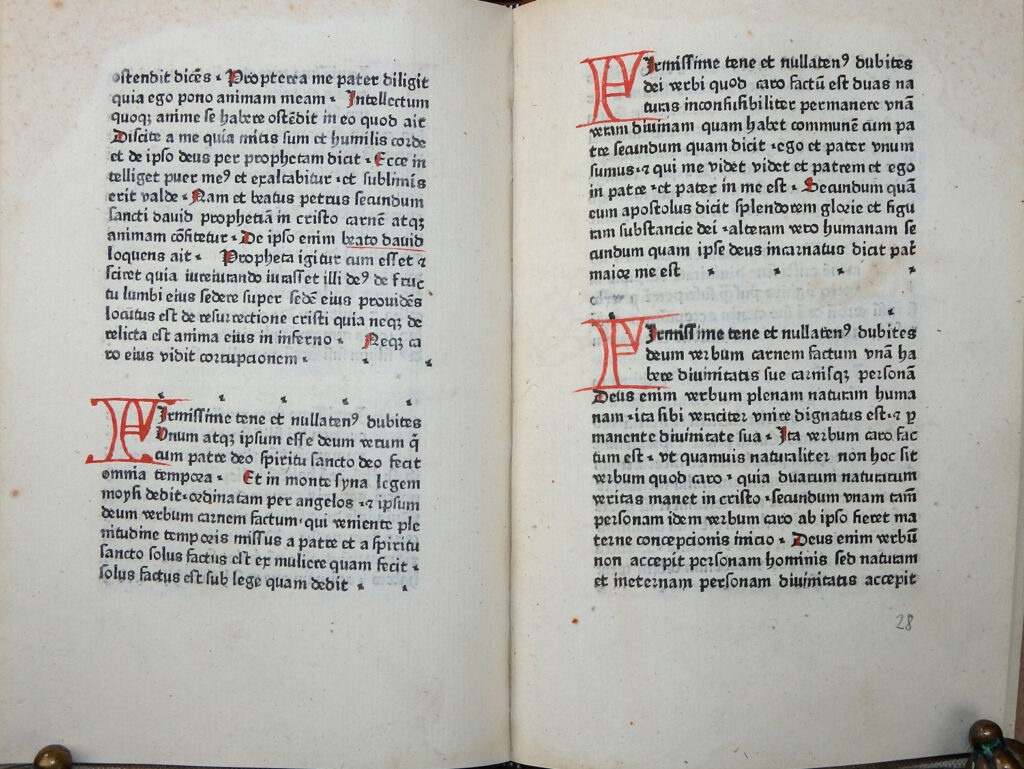 ostendit dicẽs · Propterea me pater diligit
quia ego pono animam meam · Intellectum
quoqꝫ anime se habere ostẽdit in eo quod ait
Discite a me quia mitis sum et humilis corde
et de ipso deus per prophetam dicit · Ecce in
telliget puer meꝰ et exaltabitur · et sublimis
erit valde · Nam et beatus petrus secundum
sancti dauid prophetiã in cristo carnẽ atqꝫ
animam cõfitetur · De ipso enim beato dauid
loquens ait · Propheta igitur cum esset ⁊
sciret quia iureiurando iurasset illi deꝰ de fruc
tu lumbi eius sedere super sedẽ eius prouidẽs
locutus est de resurrectione cristi quia neqꝫ de
relicta est anima eius in inferno · Neqꝫ ca
ro eius vidit corrupcionem ·
Firmissime tene et nullatenꝰ dubites
Vnum atqꝫ ipsum esse deum verum q̃
cum patre deo spiritu sancto deo fecit
omnia tempora · Et in monte syna legem
moysi dedit · ordinatam per angelos · ⁊ ipsum
deum verbum carnem factum · qui veniente ple
nitudine temporis missus a patre et a spiritu
sancto solus factus est ex muliere quam fecit ·
solus factus est sub lege quam dedit ·
Firmissime tene et nullatenꝰ dubites
dei verbi quod caro factũ est duas na
turas inconfusibiliter permanere vnã
veram diuinam quam habet communẽ cum pa
tre secundum quam dicit · ego et pater vnum
sumus · ⁊ qui me videt videt et patrem et ego
in patre · et pater in me est · Secundum quã
eum apostolus dicit splendorem glorie et figu
ram substancie dei · alteram vero humanam se
cundum quam ipse deus incarnatus dicit pat̃
maior me est
Firmissime tene et nullatenꝰ dubites
deum verbum carnem factum vnã ha
bere diuinitatis sue carnisqꝫ personã
Deus enim verbum plenam naturam huma
nam · ita sibi veraciter vnire dignatus est · ⁊ ꝑ
manente diuinitate sua · Ita verbum caro fac
tum est · vt quamuis naturaliter non hoc sit
verbum quod caro · quia duarum naturarum
veritas manet in cristo · secundum vnam tam̃
personam idem verbum caro ab ipso fieret ma
terne concepcionis inicio · Deus enim verbũ
non accepit personam hominis sed naturam
et in eternam personam diuinitatis accepit
28